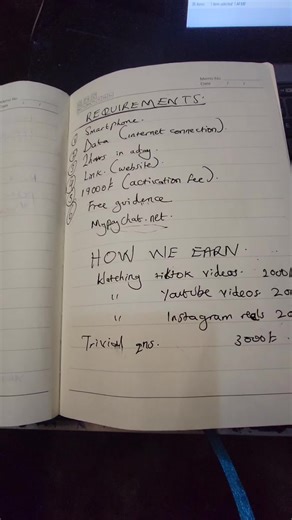 REQUIREMENTS:
Smartphone.
Data (internet connection).
2hours in aday
Link (website).
19000/= (activation fee).
Free guidence
Mypaychat.net.
HOW WE EARN.
Watching tiktok videos. 2000
" Youtube videos 20
" Instagram reels 20
Trivial qns. 3000/=.